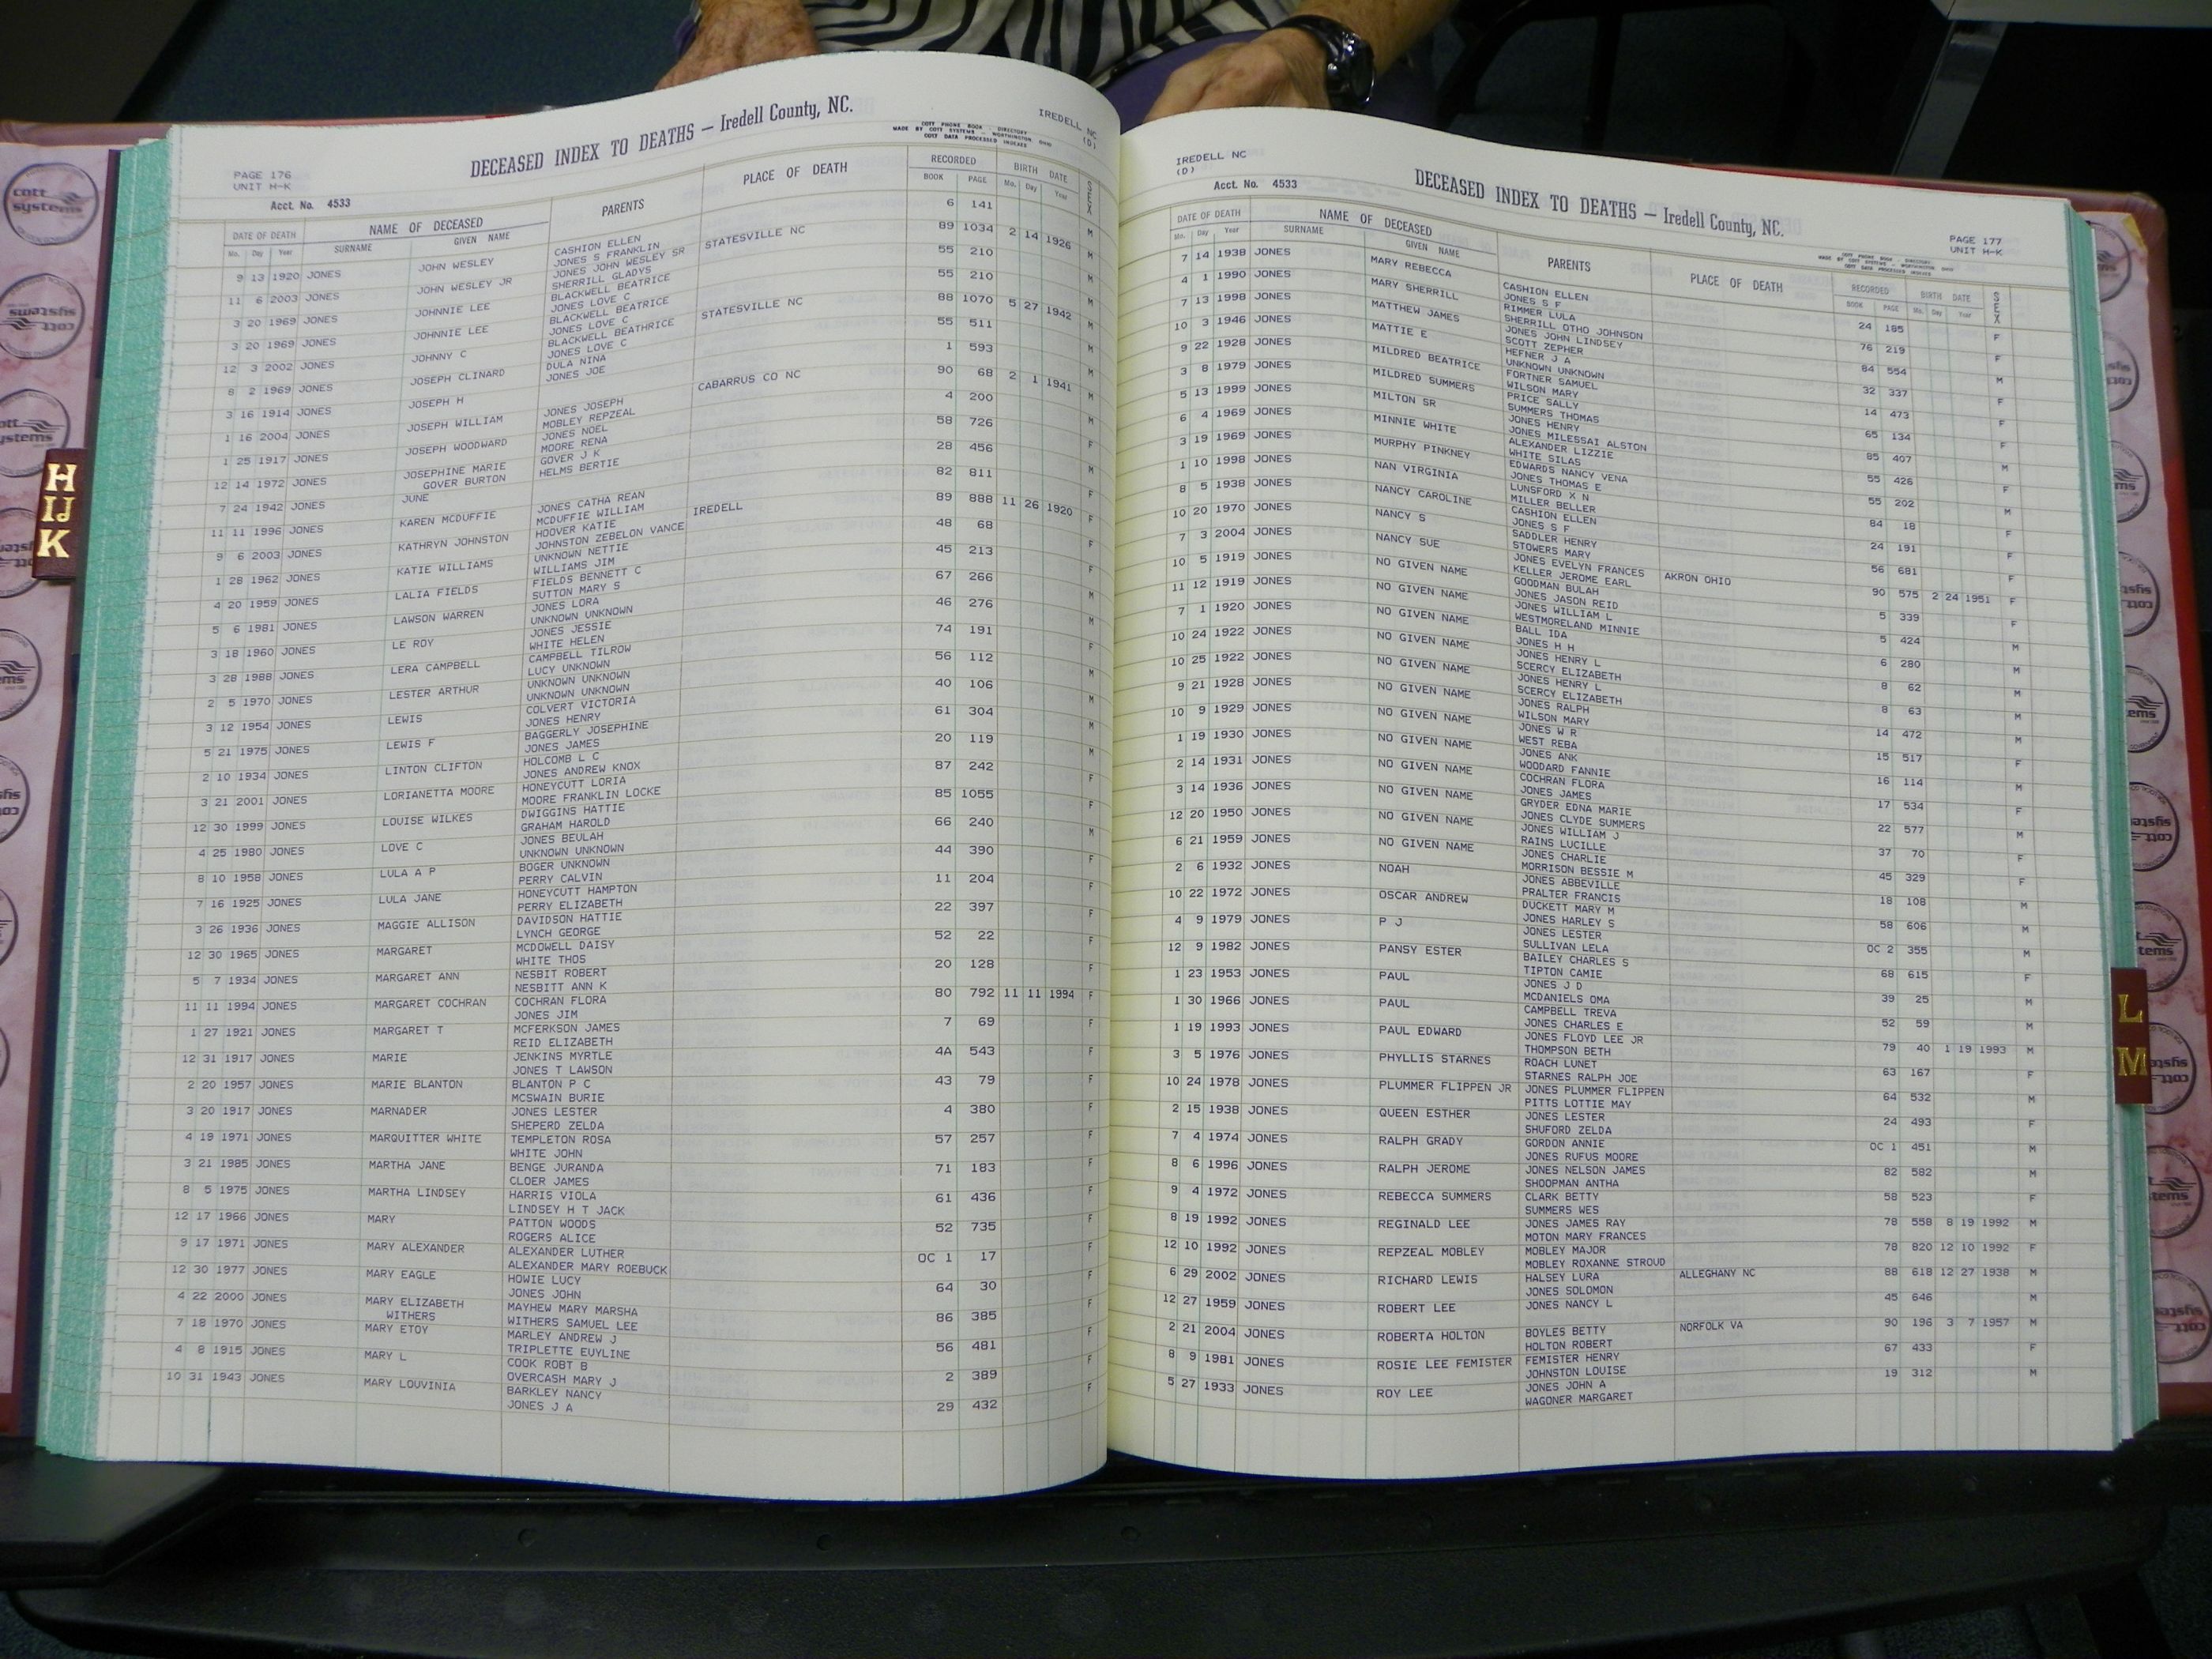 IREDELL NC
(D)
PAGE 176
UNIT H-K
DECEASED INDEX TO DEATHS — Iredell County, NC.
COTT PHONE BOOK - DIRECTORY
MADE BY COTT SYSTEMS — WORTHINGTON OHIO
COTT DATA PROCESSED INDEXES
Acct. No. 4533
DATE OF DEATH NAME OF DECEASED PARENTS PLACE OF DEATH RECORDED BIRTH DATE SEX
Mo. Day Year SURNAME GIVEN NAME BOOK PAGE Mo. Day Year
9 13 1920 JONES JOHN WESLEY CASHION ELLEN 6 141 M
JONES S FRANKLIN
11 6 2003 JONES JOHN WESLEY JR JONES JOHN WESLEY SR STATESVILLE NC 89 1034 2 14 1926 M
SHERRILL GLADYS
3 20 1969 JONES JOHNNIE LEE BLACKWELL BEATRICE 55 210 M
JONES LOVE C
3 20 1969 JONES JOHNNIE LEE BLACKWELL BEATRICE 55 210 M
JONES LOVE C
12 3 2002 JONES JOHNNY C BLACKWELL BEATHRICE STATESVILLE NC 88 1070 5 27 1942 M
JONES LOVE C
8 2 1969 JONES JOSEPH CLINARD DULA NINA 55 511 M
JONES JOE
3 16 1914 JONES JOSEPH H 1 593 M
1 16 2004 JONES JOSEPH WILLIAM JONES JOSEPH CABARRUS CO NC 90 68 2 1 1941 M
MOBLEY REPZEAL
1 25 1917 JONES JOSEPH WOODWARD JONES NOEL 4 200 M
MOORE RENA
12 14 1972 JONES JOSEPHINE MARIE GOVER J K 58 726 F
GOVER BURTON HELMS BERTIE
7 24 1942 JONES JUNE JONES CATHA REAN 28 456 M
11 11 1996 JONES KAREN MCDUFFIE MCDUFFIE WILLIAM 82 811 F
9 6 2003 JONES KATHRYN JOHNSTON HOOVER KATIE IREDELL 89 888 11 26 1920 F
JOHNSTON ZEBELON VANCE
1 28 1962 JONES KATIE WILLIAMS UNKNOWN NETTIE 48 68 F
WILLIAMS JIM
4 20 1959 JONES LALIA FIELDS FIELDS BENNETT C 45 213 F
SUTTON MARY S
5 6 1981 JONES LAWSON WARREN JONES LORA 67 266 M
UNKNOWN UNKNOWN
3 18 1960 JONES LE ROY JONES JESSIE 46 276 M
WHITE HELEN
3 28 1988 JONES LERA CAMPBELL CAMPBELL TILROW 74 191 F
LUCY UNKNOWN
2 5 1970 JONES LESTER ARTHUR UNKNOWN UNKNOWN 56 112 M
UNKNOWN UNKNOWN
3 12 1954 JONES LEWIS COLVERT VICTORIA 40 106 M
JONES HENRY
5 21 1975 JONES LEWIS F BAGGERLY JOSEPHINE 61 304 M
JONES JAMES
2 10 1934 JONES LINTON CLIFTON HOLCOMB L C 20 119 M
JONES ANDREW KNOX
3 21 2001 JONES LORIANETTA MOORE HONEYCUTT LORIA 87 242 F
MOORE FRANKLIN LOCKE
12 30 1999 JONES LOUISE WILKES DWIGGINS HATTIE 85 1055 F
GRAHAM HAROLD
4 25 1980 JONES LOVE C JONES BEULAH 66 240 M
UNKNOWN UNKNOWN
8 10 1958 JONES LULA A P BOGER UNKNOWN 44 390 F
PERRY CALVIN
7 16 1925 JONES LULA JANE HONEYCUTT HAMPTON 11 204 F
PERRY ELIZABETH
3 26 1936 JONES MAGGIE ALLISON DAVIDSON HATTIE 22 397 F
LYNCH GEORGE
12 30 1965 JONES MARGARET MCDOWELL DAISY 52 22 F
WHITE THOS
5 7 1934 JONES MARGARET ANN NESBIT ROBERT 20 128 F
NESBITT ANN K
11 11 1994 JONES MARGARET COCHRAN COCHRAN FLORA 80 792 11 11 1994 F
JONES JIM
1 27 1921 JONES MARGARET T MCFERKSON JAMES 7 69 F
REID ELIZABETH
12 31 1917 JONES MARIE JENKINS MYRTLE 4A 543 F
JONES T LAWSON
2 20 1957 JONES MARIE BLANTON BLANTON P C 43 79 F
MCSWAIN BURIE
3 20 1917 JONES MARNADER JONES LESTER 4 380 F
SHEPERD ZELDA
4 19 1971 JONES MARQUITTER WHITE TEMPLETON ROSA 57 257 F
WHITE JOHN
3 21 1985 JONES MARTHA JANE BENGE JURANDA 71 183 F
CLOER JAMES
8 5 1975 JONES MARTHA LINDSEY HARRIS VIOLA 61 436 F
LINDSEY H T JACK
12 17 1966 JONES MARY PATTON WOODS 52 735 F
ROGERS ALICE
9 17 1971 JONES MARY ALEXANDER ALEXANDER LUTHER OC 1 17 F
ALEXANDER MARY ROEBUCK
12 30 1977 JONES MARY EAGLE HOWIE LUCY 64 30 F
JONES JOHN
4 22 2000 JONES MARY ELIZABETH MAYHEW MARY MARSHA 86 385 F
WITHERS WITHERS SAMUEL LEE
7 18 1970 JONES MARY ETOY MARLEY ANDREW J 56 481 F
TRIPLETTE EUYLINE
4 8 1915 JONES MARY L COOK ROBT B 2 389 F
OVERCASH MARY J
10 31 1943 JONES MARY LOUVINIA BARKLEY NANCY 29 432
JONES J A
IREDELL NC
(D)
Acct. No. 4533
DECEASED INDEX TO DEATHS — Iredell County, NC.
PAGE 177
UNIT H-K
COTT PHONE BOOK - DIRECTORY
MADE BY COTT SYSTEMS — WORTHINGTON OHIO
COTT DATA PROCESSED INDEXES
DATE OF DEATH NAME OF DECEASED PARENTS PLACE OF DEATH RECORDED BIRTH DATE SEX
Mo. Day Year SURNAME GIVEN NAME BOOK PAGE Mo. Day Year
7 14 1938 JONES MARY REBECCA CASHION ELLEN 24 185 F
JONES S F
4 1 1990 JONES MARY SHERRILL RIMMER LULA 76 219 F
SHERRILL OTHO JOHNSON
7 13 1998 JONES MATTHEW JAMES JONES JOHN LINDSEY 84 554 M
SCOTT ZEPHER
10 3 1946 JONES MATTIE E HEFNER J A 32 337 F
UNKNOWN UNKNOWN
9 22 1928 JONES MILDRED BEATRICE FORTNER SAMUEL 14 473 F
WILSON MARY
3 8 1979 JONES MILDRED SUMMERS PRICE SALLY 65 134 F
SUMMERS THOMAS
5 13 1999 JONES MILTON SR JONES HENRY 85 407 M
JONES MILESSAI ALSTON
6 4 1969 JONES MINNIE WHITE ALEXANDER LIZZIE 55 426 F
WHITE SILAS
3 19 1969 JONES MURPHY PINKNEY EDWARDS NANCY VENA 55 202 M
JONES THOMAS E
1 10 1998 JONES NAN VIRGINIA LUNSFORD X N 84 18 F
MILLER BELLER
8 5 1938 JONES NANCY CAROLINE CASHION ELLEN 24 191 F
JONES S F
10 20 1970 JONES NANCY S SADDLER HENRY 56 681 F
STOWERS MARY
7 3 2004 JONES NANCY SUE JONES EVELYN FRANCES AKRON OHIO 90 575 2 24 1951 F
KELLER JEROME EARL
10 5 1919 JONES NO GIVEN NAME GOODMAN BULAH 5 339 F
JONES JASON REID
11 12 1919 JONES NO GIVEN NAME JONES WILLIAM L 5 424 M
WESTMORELAND MINNIE
7 1 1920 JONES NO GIVEN NAME BALL IDA 6 280 M
JONES H H
10 24 1922 JONES NO GIVEN NAME JONES HENRY L 8 62 M
SCERCY ELIZABETH
10 25 1922 JONES NO GIVEN NAME JONES HENRY L 8 63 M
SCERCY ELIZABETH
9 21 1928 JONES NO GIVEN NAME JONES RALPH 14 472 M
WILSON MARY
10 9 1929 JONES NO GIVEN NAME JONES W R 15 517 F
WEST REBA
1 19 1930 JONES NO GIVEN NAME JONES ANK 16 114 M
WOODARD FANNIE
2 14 1931 JONES NO GIVEN NAME COCHRAN FLORA 17 534 F
JONES JAMES
3 14 1936 JONES NO GIVEN NAME GRYDER EDNA MARIE 22 577 M
JONES CLYDE SUMMERS
12 20 1950 JONES NO GIVEN NAME JONES WILLIAM J 37 70 F
RAINS LUCILLE
6 21 1959 JONES NO GIVEN NAME JONES CHARLIE 45 329 F
MORRISON BESSIE M
2 6 1932 JONES NOAH JONES ABBEVILLE 18 108 M
PRALTER FRANCIS
10 22 1972 JONES OSCAR ANDREW DUCKETT MARY M 58 606 M
JONES HARLEY S
4 9 1979 JONES P J JONES LESTER OC 2 355 M
SULLIVAN LELA
12 9 1982 JONES PANSY ESTER BAILEY CHARLES S 68 615 F
TIPTON CAMIE
1 23 1953 JONES PAUL JONES J D 39 25 M
MCDANIELS OMA
1 30 1966 JONES PAUL CAMPBELL TREVA 52 59 M
JONES CHARLES E
1 19 1993 JONES PAUL EDWARD JONES FLOYD LEE JR 79 40 1 19 1993 M
THOMPSON BETH
3 5 1976 JONES PHYLLIS STARNES ROACH LUNET 63 167 F
STARNES RALPH JOE
10 24 1978 JONES PLUMMER FLIPPEN JR JONES PLUMMER FLIPPEN 64 532 M
PITTS LOTTIE MAY
2 15 1938 JONES QUEEN ESTHER JONES LESTER 24 493 F
SHUFORD ZELDA
7 4 1974 JONES RALPH GRADY GORDON ANNIE OC 1 451 M
JONES RUFUS MOORE
8 6 1996 JONES RALPH JEROME JONES NELSON JAMES 82 582 M
SHOOPMAN ANTHA
9 4 1972 JONES REBECCA SUMMERS CLARK BETTY 58 523 F
SUMMERS WES
8 19 1992 JONES REGINALD LEE JONES JAMES RAY 78 558 8 19 1992 M
MOTON MARY FRANCES
12 10 1992 JONES REPZEAL MOBLEY MOBLEY MAJOR 78 820 12 10 1992 F
MOBLEY ROXANNE STROUD
6 29 2002 JONES RICHARD LEWIS HALSEY LURA ALLEGHANY NC 88 618 12 27 1938 M
JONES SOLOMON
12 27 1959 JONES ROBERT LEE JONES NANCY L 45 646 M
2 21 2004 JONES ROBERTA HOLTON BOYLES BETTY NORFOLK VA 90 196 3 7 1957 M
HOLTON ROBERT
8 9 1981 JONES ROSIE LEE FEMISTER FEMISTER HENRY 67 433 F
JOHNSTON LOUISE
5 27 1933 JONES ROY LEE JONES JOHN A 19 312 M
WAGONER MARGARET
H
IJ
K
L
M
cott
systems